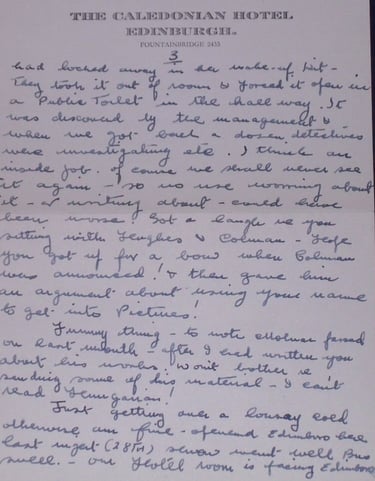 THE CALEDONIAN HOTEL
EDINBURGH.
FOUNTAINBRIDGE 2433
3
had locked away in her make-up kit -
They took it out of room & forced it open in
a Public Toilet in the hall way. It
was discovered by the management &
when we got back a dozen detectives
were investigating etc. I think an
inside job. of course we shall never see
it again - so no use worrying about
it - or writing about - could have
been worse. Got a laugh re you
sitting with Hughes & Colman - Hope
you got up for a bow when Colman
was announced! & then gave him
an argument about using your name
to get into Pictures!
Funny thing - to note Molnar passed
on last month - after I had written you
about his works. Won't bother re
sending some of his material - I can't
read Hungarian!
Just getting over a lousy cold
otherwise am fine - opened Edinboro here
last night (28TH) show went well Bus
swell. - our Hotel room is facing Edinboro